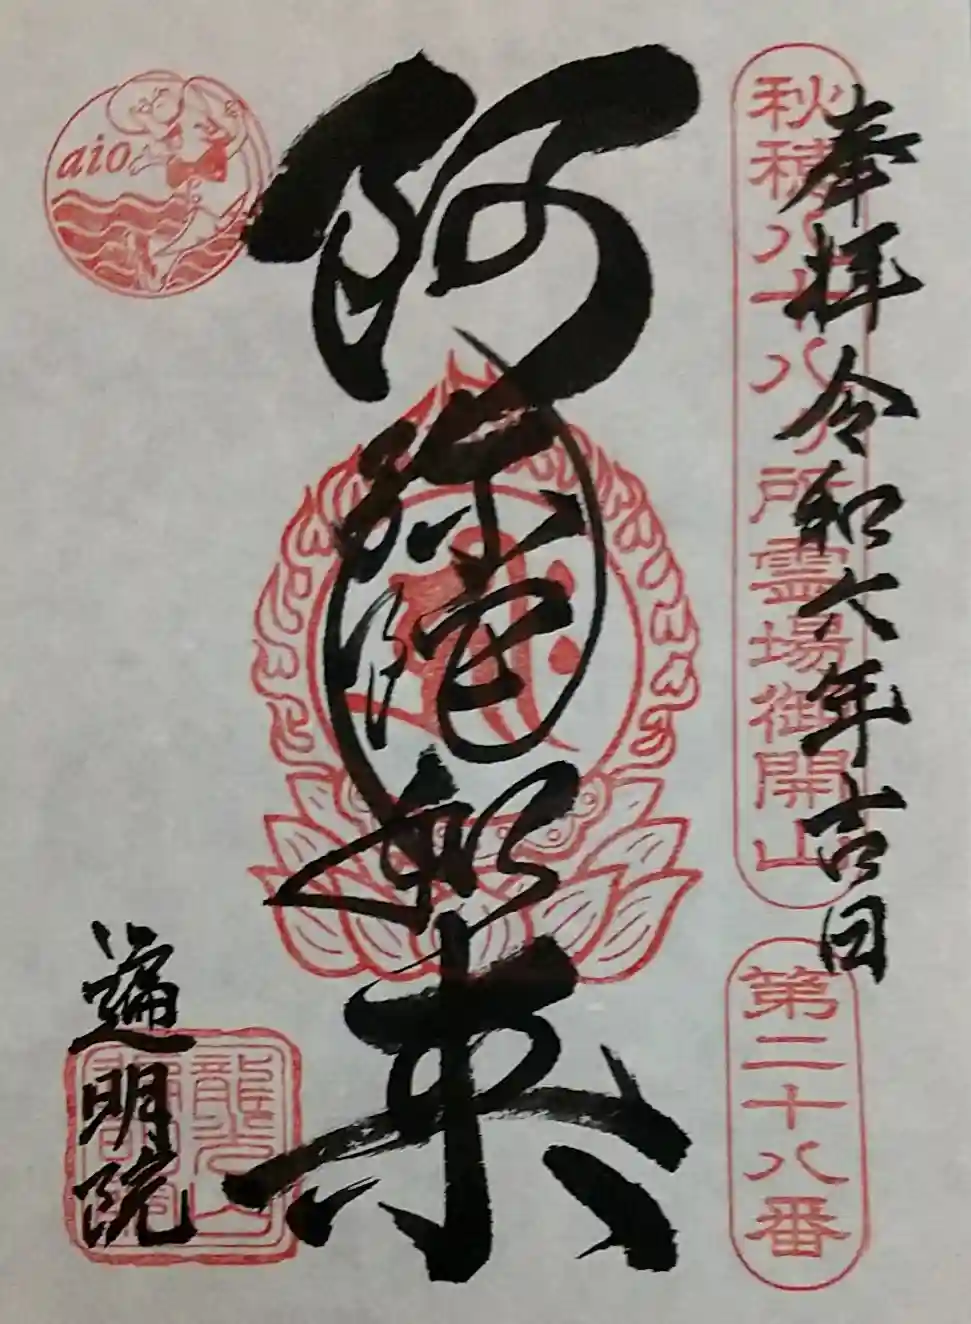 奉拝 令和六年吉日
秋穂八十八ヶ所霊場御開山
第二十八番
阿弥陀如来
aio
遍明院